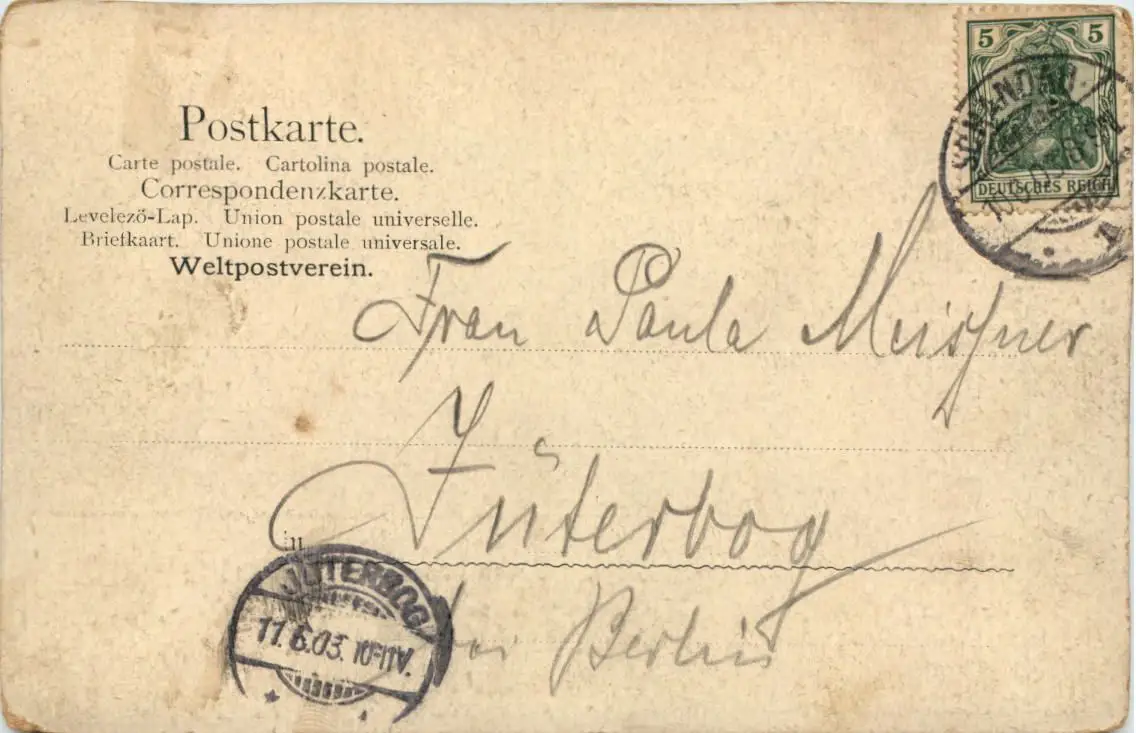 5 5
DEUTSCHES REICH
Postkarte.
Carte postale. Cartolina postale.
Correspondenzkarte.
Levelező-Lap. Union postale universelle.
Briefkaart. Unione postale universale.
Weltpostverein.
Frau Paula Meißner
in Jüterbog
bei Berlin
JÜTERBOG
11.6.03. 10-11V.